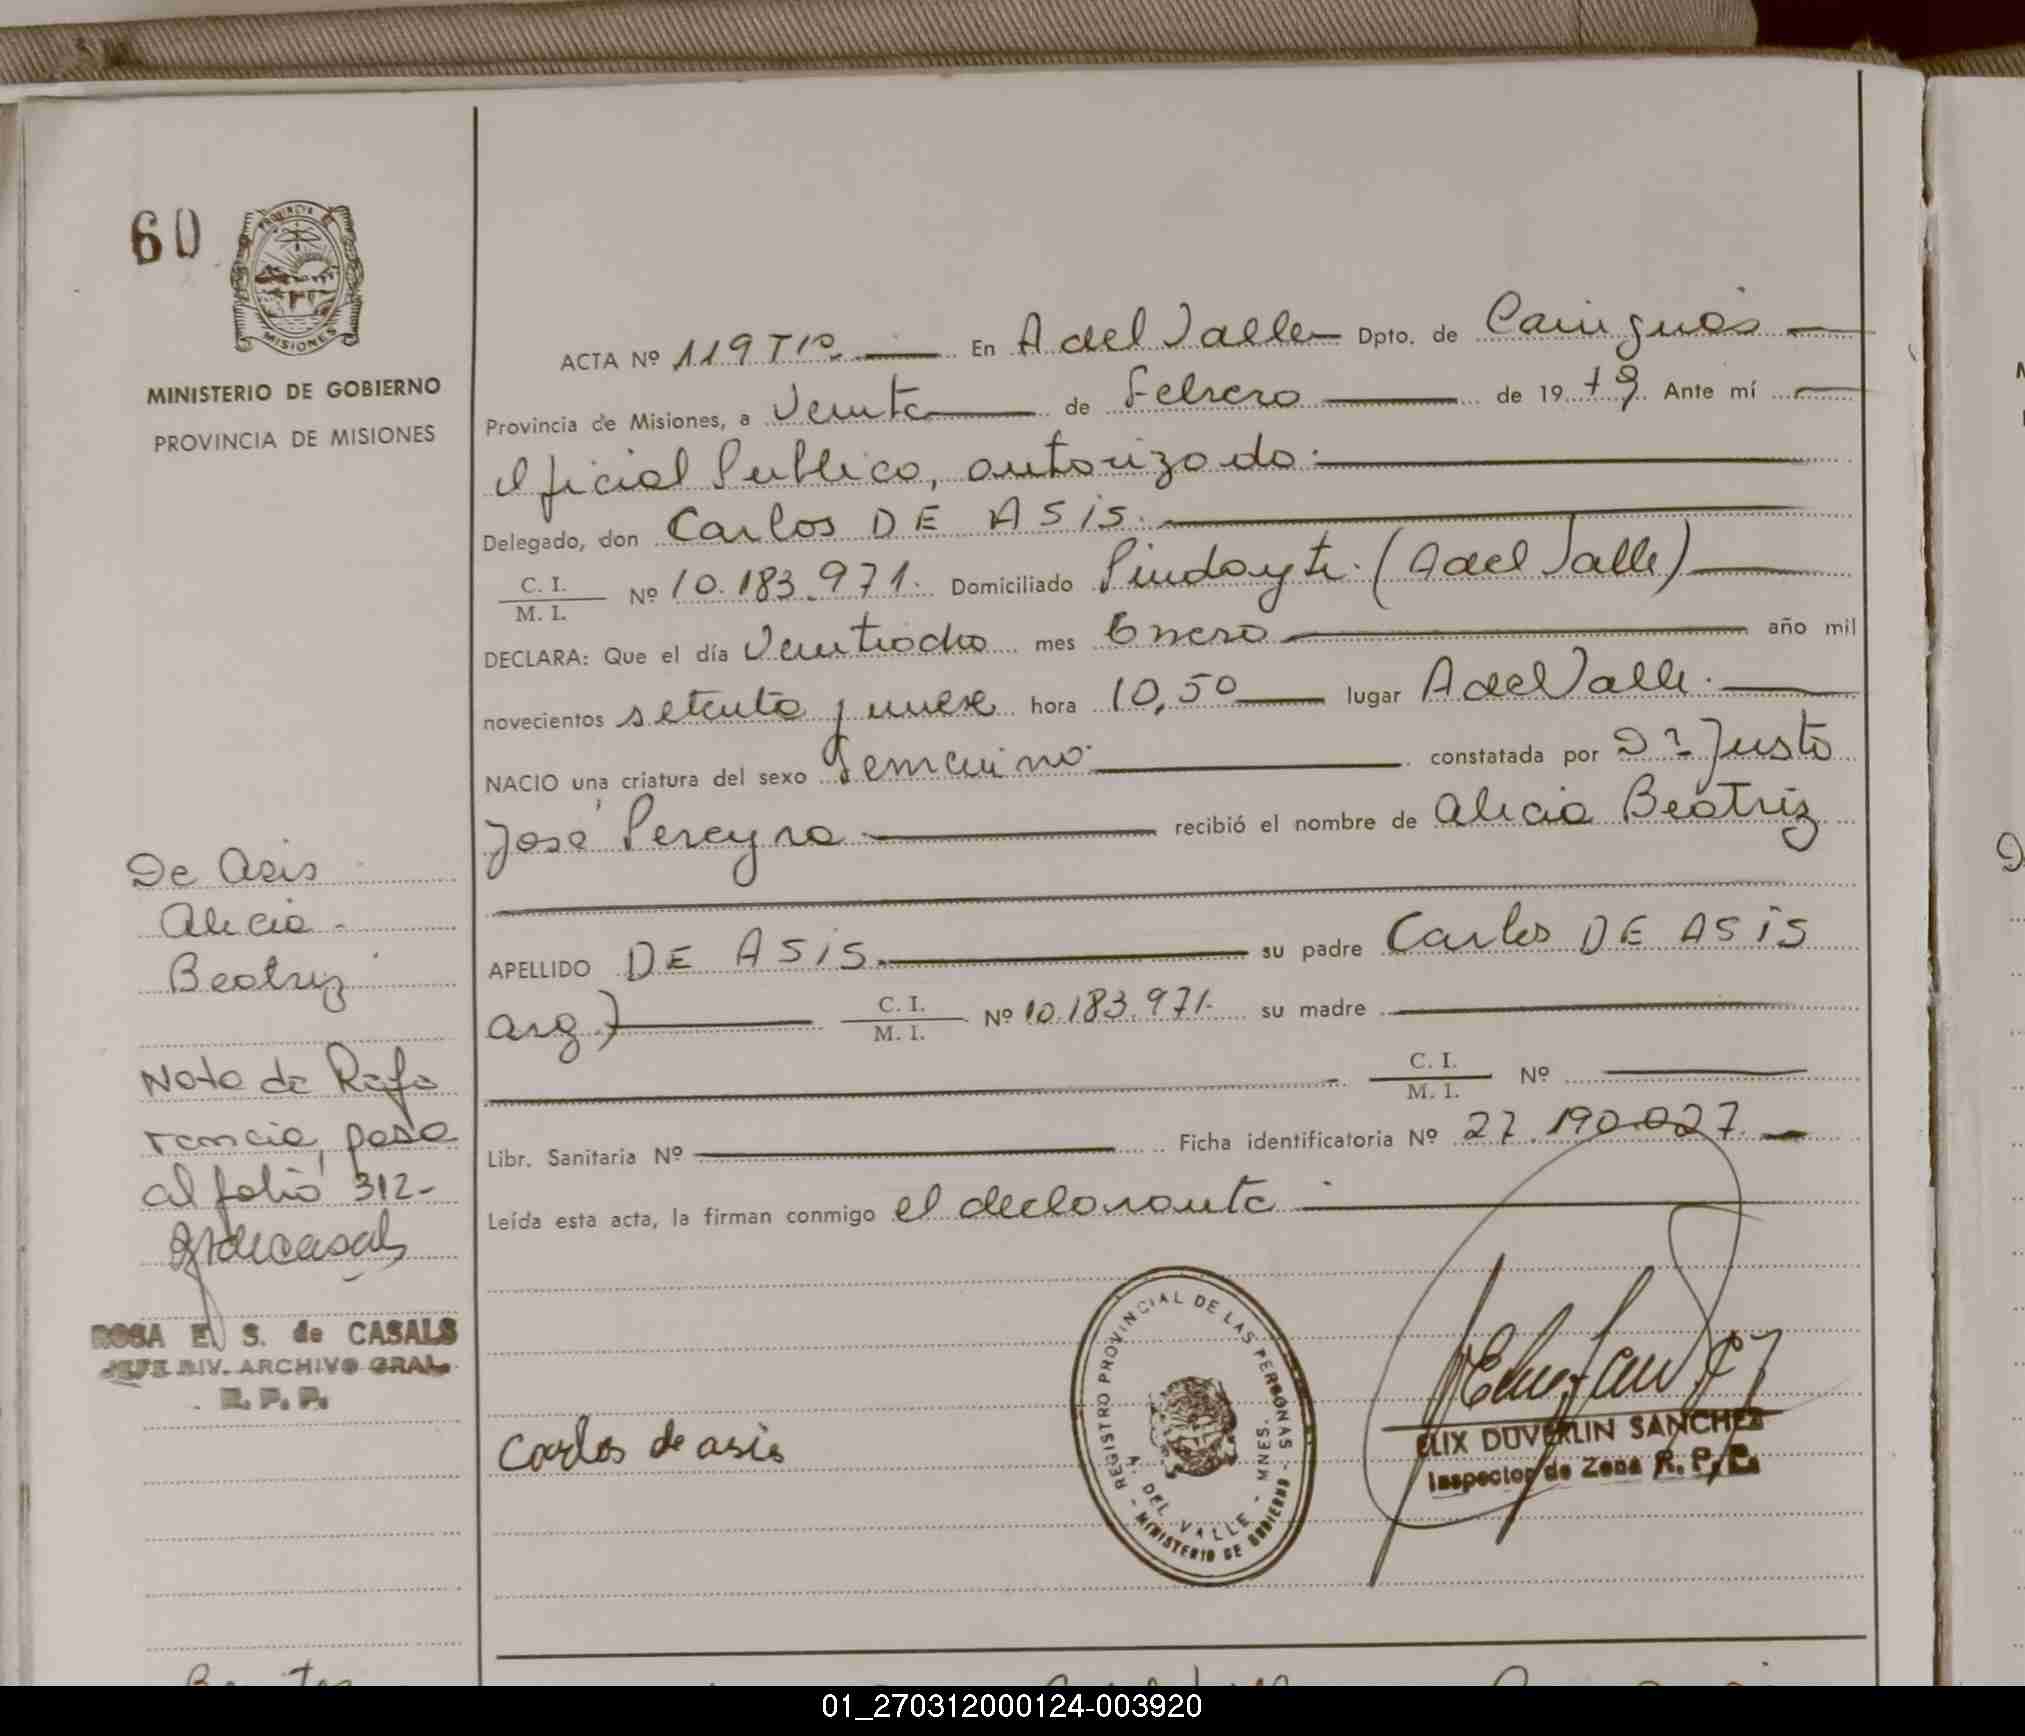 60
PROVINCIA DE
MISIONES
MINISTERIO DE GOBIERNO
PROVINCIA DE MISIONES
ACTA Nº 119 Tº. En A del Valle Dpto. de Cainguás
Provincia de Misiones, a Veinte de Febrero de 1979 Ante mí
Oficial Publico, autorizado.
Delegado, don Carlos DE ASIS.
C. I.
M. I. Nº 10.183.971. Domiciliado Pindayti. (A del Valle)
DECLARA: Que el día Veintiocho mes Enero año mil
novecientos setenta y nueve hora 10,50 lugar A del Valle.
NACIO una criatura del sexo Femenino constatada por Dr Justo
José Pereyra recibió el nombre de Alicia Beatriz
APELLIDO DE ASIS. su padre Carlos DE ASIS
arg.) C. I.
M. I. Nº 10.183.971. su madre
C. I.
M. I. Nº
Libr. Sanitaria Nº Ficha identificatoria Nº 27.190.027.
Leída esta acta, la firman conmigo el declarante
De Asis
Alicia
Beatriz
Nota de Refe
rencia, pasa
al folio 312-
ROSA E. S. de CASALS
JEFE DIV. ARCHIVO GRAL.
R. P. P.
Carlos de asis
REGISTRO PROVINCIAL DE LAS PERSONAS
A. DEL VALLE - MNES.
MINISTERIO DE GOBIERNO
ELIX DUVERLIN SANCHEZ
Inspector de Zona R. P. P.
01_270312000124-003920